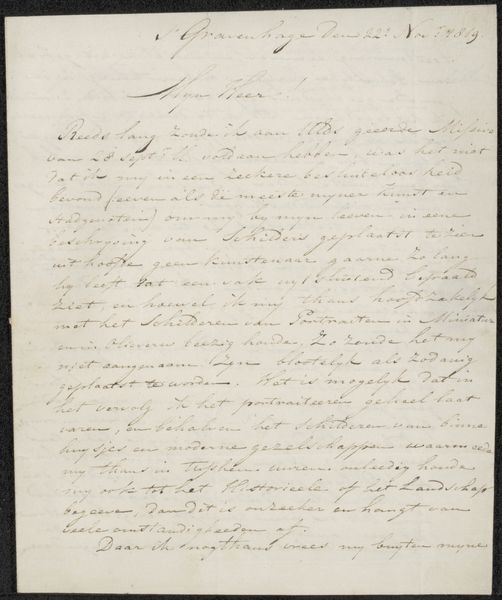 s' Gravenhage Den 22: Nov: 1819.
Myn Heer!
Reeds lang zoude ik aan UEds geeerde Missive
van 28 Sept: ll. voldaan hebben, was het niet
dat ik my in een zeekere besluiteloosheid
bevond (eeven als de meeste myner kunst en
Stadgenoten) om my by myn leeven in eene
beschryving van Schilders geplaatst te zien
uit hoofde geen kunstenaar gaarne zo lang
hy leeft tot een vak uytsluitend bepaald
ziet, en hoewel ik my thans hoofdzakelyk
met het Schilderen van Portraiten in Miniatur
en in olieverw beezig houde, Zo zoude het my
niet aangenaam Zyn blootelyk als zodanig
geplaatst te worden. Het is mogelyk dat in
het vervolg ik het portraiteeren geheel laat
varen, en behalven het Schilderen van binne
huysjes en moderne gezelschappen waarmeede
my thans in tusschen uuren onleedig houde
my ook tot het Historieele of het Landschap
begeeve, dan dit is onzeeker en hangt van
veele omstandigheeden af.
Daar ik nogthans vrees my buyten myne